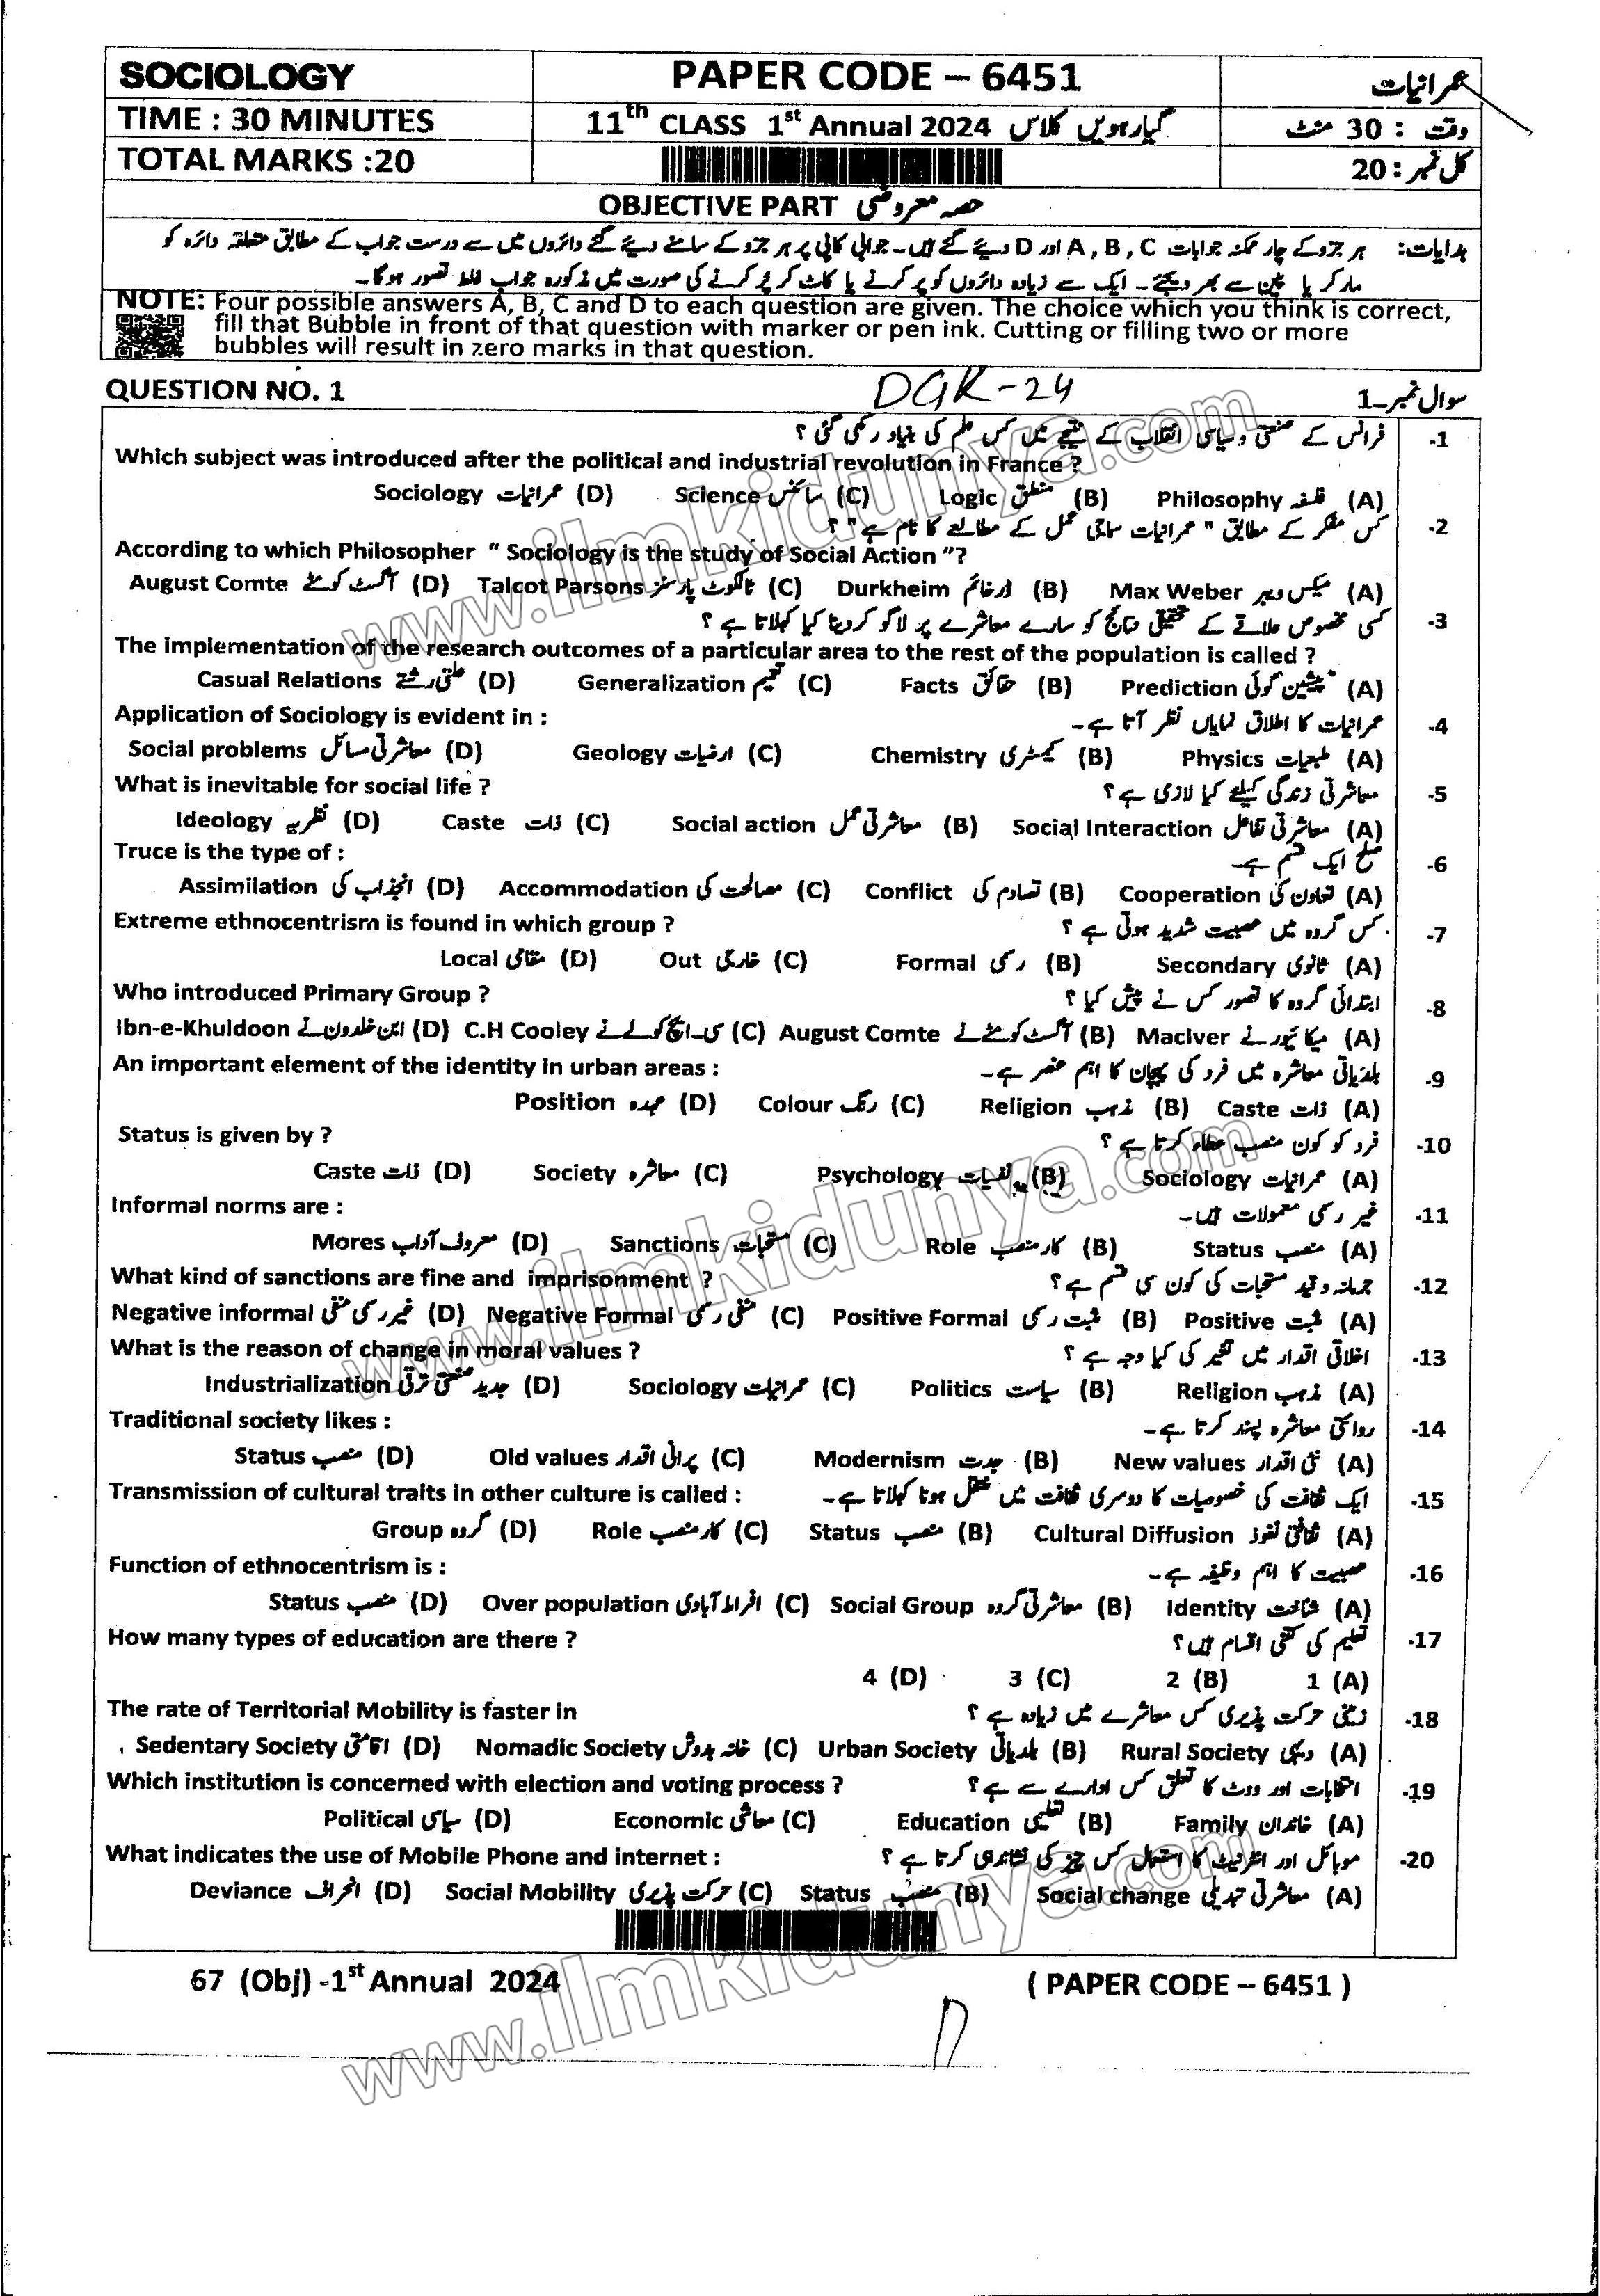 SOCIOLOGY
PAPER CODE – 6451
عمرانیات
TIME : 30 MINUTES
11th CLASS 1st Annual 2024 گیارہویں کلاس
وقت : 30 منٹ
TOTAL MARKS :20
کل نمبر : 20
OBJECTIVE PART حصہ معروضی
ہدایات: ہر جزو کے چار ممکنہ جوابات A , B , C اور D دیئے گئے ہیں۔ جوابی کاپی پر ہر جزو کے سامنے دیئے گئے دائروں میں سے درست جواب کے مطابق متعلقہ دائرہ کو
مارکر یا پین سے بھر دیجئے۔ ایک سے زیادہ دائروں کو پر کرنے یا کاٹ کر پُر کرنے کی صورت میں مذکورہ جواب غلط تصور ہوگا۔
NOTE: Four possible answers A, B, C and D to each question are given. The choice which you think is correct,
fill that Bubble in front of that question with marker or pen ink. Cutting or filling two or more
bubbles will result in zero marks in that question.
QUESTION NO. 1
DGK-24
سوال نمبر۔1
-1 فرانس کے صنعتی و سیاسی انقلاب کے نتیجے میں کس علم کی بنیاد رکھی گئی ؟
Which subject was introduced after the political and industrial revolution in France ?
(A) فلسفہ Philosophy (B) منطق Logic (C) سائنس Science (D) عمرانیات Sociology
-2 کس مفکر کے مطابق " عمرانیات سماجی عمل کے مطالعے کا نام ہے" ؟
According to which Philosopher “ Sociology is the study of Social Action ”?
(A) میکس ویبر Max Weber (B) ڈرخائم Durkheim (C) ٹالکوٹ پارسنز Talcot Parsons (D) آگسٹ کومٹے August Comte
-3 کسی مخصوص علاقے کے تحقیقی نتائج کو سارے معاشرے پر لاگو کر دینا کیا کہلاتا ہے ؟
The implementation of the research outcomes of a particular area to the rest of the population is called ?
(A) پیشین گوئی Prediction (B) حقائق Facts (C) تعمیم Generalization (D) علتی رشتے Casual Relations
Application of Sociology is evident in : عمرانیات کا اطلاق نمایاں نظر آتا ہے۔ -4
(A) طبعیات Physics (B) کیمسٹری Chemistry (C) ارضیات Geology (D) معاشرتی مسائل Social problems
What is inevitable for social life ? معاشرتی زندگی کیلئے کیا لازمی ہے ؟ -5
(A) معاشرتی تفاعل Social Interaction (B) معاشرتی عمل Social action (C) ذات Caste (D) نظریہ Ideology
Truce is the type of : صلح ایک قسم ہے۔ -6
(A) تعاون کی Cooperation (B) تصادم کی Conflict (C) مصالحت کی Accommodation (D) انجذاب کی Assimilation
Extreme ethnocentrism is found in which group ? کس گروہ میں عصبیت شدید ہوتی ہے ؟ -7
(A) ثانوی Secondary (B) رسمی Formal (C) خارجی Out (D) مقامی Local
Who introduced Primary Group ? ابتدائی گروہ کا تصور کس نے پیش کیا ؟ -8
(A) میکائیور نے MacIver (B) آگسٹ کومٹے نے August Comte (C) سی۔ایچ کولے نے C.H Cooley (D) ابن خلدون نے Ibn-e-Khuldoon
An important element of the identity in urban areas : بلدیاتی معاشرہ میں فرد کی پہچان کا اہم عنصر ہے۔ -9
(A) ذات Caste (B) مذہب Religion (C) رنگ Colour (D) عہدہ Position
Status is given by ? فرد کو کون منصب عطاء کرتا ہے ؟ -10
(A) عمرانیات Sociology (B) نفسیات Psychology (C) معاشرہ Society (D) ذات Caste
Informal norms are : غیر رسمی معمولات ہیں۔ -11
(A) منصب Status (B) کار منصب Role (C) مستحبات Sanctions (D) معروف آداب Mores
What kind of sanctions are fine and imprisonment ? جرمانہ و قید مستحبات کی کون سی قسم ہے ؟ -12
(A) مثبت Positive (B) مثبت رسمی Positive Formal (C) منفی رسمی Negative Formal (D) غیر رسمی منفی Negative informal
What is the reason of change in moral values ? اخلاقی اقدار میں تغیر کی کیا وجہ ہے ؟ -13
(A) مذہب Religion (B) سیاست Politics (C) عمرانیات Sociology (D) جدید صنعتی ترقی Industrialization
Traditional society likes : روائتی معاشرہ پسند کرتا ہے۔ -14
(A) نئی اقدار New values (B) جدت Modernism (C) پرانی اقدار Old values (D) منصب Status
Transmission of cultural traits in other culture is called : ایک ثقافت کی خصوصیات کا دوسری ثقافت میں منتقل ہونا کہلاتا ہے۔ -15
(A) ثقافتی نفوذ Cultural Diffusion (B) منصب Status (C) کار منصب Role (D) گروہ Group
Function of ethnocentrism is : عصبیت کا اہم وظیفہ ہے۔ -16
(A) شناخت Identity (B) معاشرتی گروہ Social Group (C) افراط آبادی Over population (D) منصب Status
How many types of education are there ? تعلیم کی کتنی اقسام ہیں؟ -17
(A) 1 (B) 2 (C) 3 (D) 4
The rate of Territorial Mobility is faster in زمینی حرکت پذیری کس معاشرے میں زیادہ ہے ؟ -18
(A) دیہی Rural Society (B) بلدیاتی Urban Society (C) خانہ بدوش Nomadic Society (D) اقامتی Sedentary Society
Which institution is concerned with election and voting process ? انتخابات اور ووٹ کا تعلق کس ادارے سے ہے ؟ -19
(A) خاندان Family (B) تعلیمی Education (C) معاشی Economic (D) سیاسی Political
What indicates the use of Mobile Phone and internet : موبائل اور انٹرنیٹ کا استعمال کس چیز کی نشاندہی کرتا ہے ؟ -20
(A) معاشرتی تبدیلی Social change (B) منصب Status (C) حرکت پذیری Social Mobility (D) انحراف Deviance
67 (Obj) -1st Annual 2024
( PAPER CODE – 6451 )
www.ilmkidunya.com
www.ilmkidunya.com
www.ilmkidunya.com